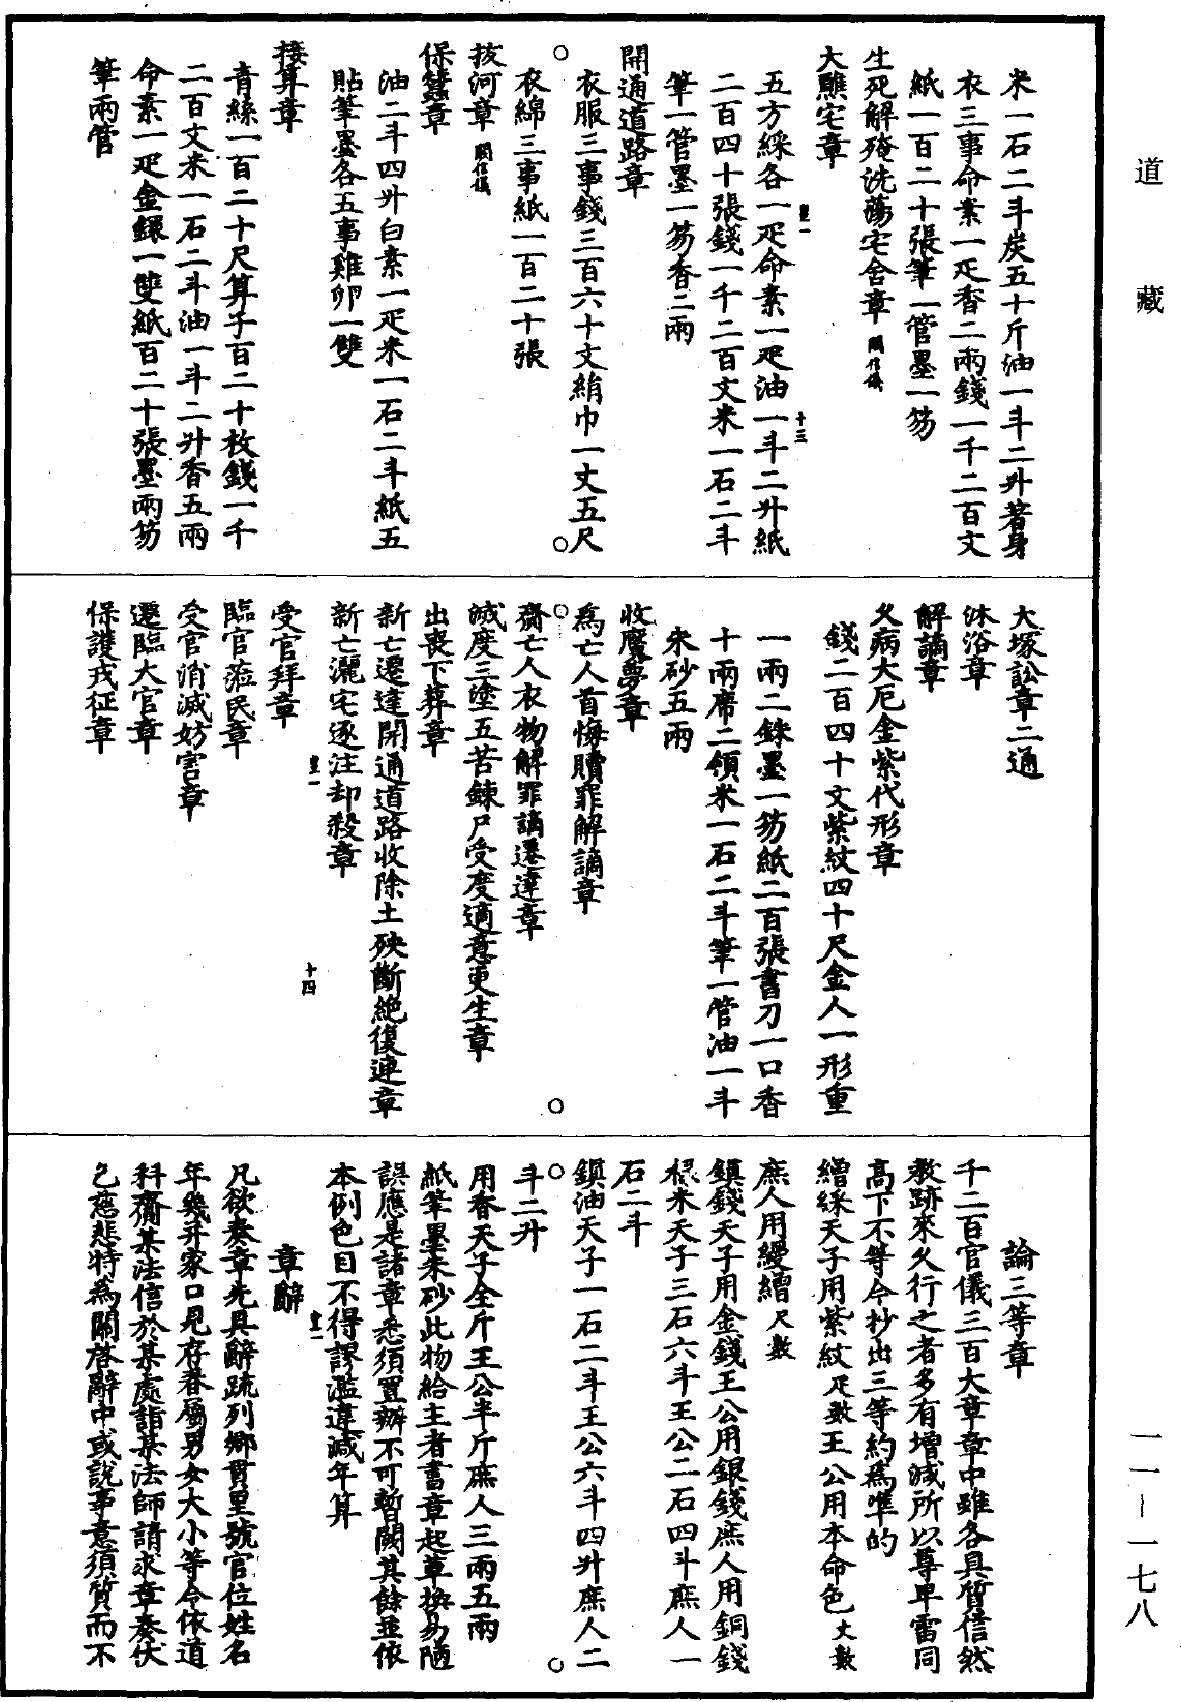 道藏
米一石二斗炭五十斤油一斗二升著身
衣三事命素一疋香二兩錢一千二百文
紙一百二十張筆一管墨一笏
生死解殗洗蕩宅舍章 闕信儀
大驅宅章
豈一 十三
五方綵各一疋命素一疋油一斗二升紙
二百四十張錢一千二百文米一石二斗
筆一管墨一笏香二兩
開通道路章
衣服三事錢三百六十文絹巾一丈五尺
衣綿三事紙一百二十張
拔河章 闕信儀
保蠶章
油二斗四升白素一疋米一石二斗紙五
貼筆墨各五事雞卵一雙
接算章
青絲一百二十尺算子百二十枚錢一千
二百文米一石二斗油一斗二升香五兩
命素一疋金鐶一雙紙百二十張墨兩笏
筆兩管
大塚訟章二通
沐浴章
解謫章
久病大厄金紫代形章
錢二百四十文紫紋四十尺金人一形重
一兩二銖墨一笏紙二百張書刀一口香
十兩席二領米一石二斗筆一管油一斗
朱砂五兩
收魘夢章
為亡人首悔贖罪解謫章
齋亡人衣物解罪謫遷達章
滅度三塗五苦鍊尸受度適意更生章
出喪下葬章
新亡遷達開通道路收除土殃斷絕復連章
新亡灑宅逐注却殺章
豈一 十四
受官拜章
臨官蒞民章
受官消滅妨害章
遷臨大官章
保護戎征章
論三等章
千二百官儀三百大章章中雖各具質信然
教跡來久行之者多有增減所以尊卑雷同
高下不等今抄出三等約為準的
繒綵天子用紫紋疋數王公用本命色丈數
庶人用縵繒尺數
鎮錢天子用金錢王公用銀錢庶人用銅錢
祿米天子三石六斗王公二石四斗庶人一
石二斗
鎮油天子一石二斗王公六斗四升庶人二
斗二升
用香天子全斤王公半斤庶人三兩五兩
紙筆墨朱砂此物給主者書章起草換易陋
誤應是諸章悉須置辦不可暫闕其餘並依
本例色目不得謬濫違減年算
豈一
章辭
凡欲奏章先具辭疏列鄉貫里號官位姓名
年幾并家口見存眷屬男女大小等令依道
科齋某法信於某處詣某法師請求章奏伏
乞慈悲特為關啟辭中或說事意須質而不
一一－一七八